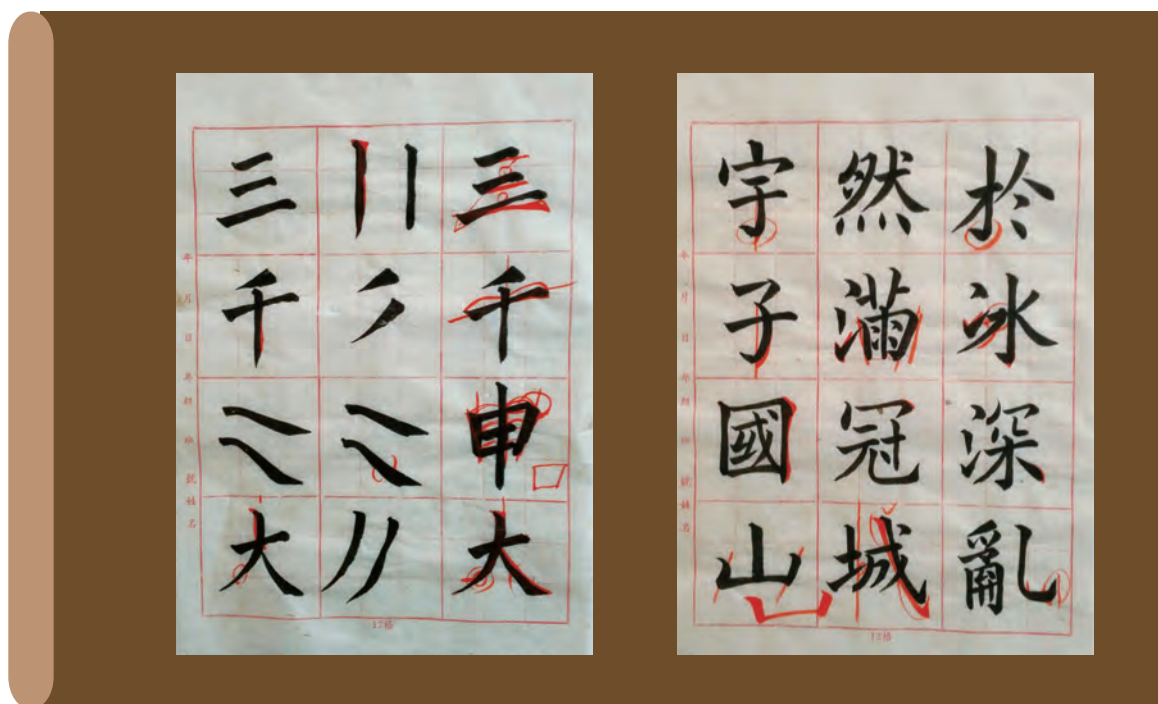 三千申大
三千大
年 月 日 年級 班 號 姓名
12格
於冰深亂
然滿冠城
宇子國山
年 月 日 年級 班 號 姓名
12格